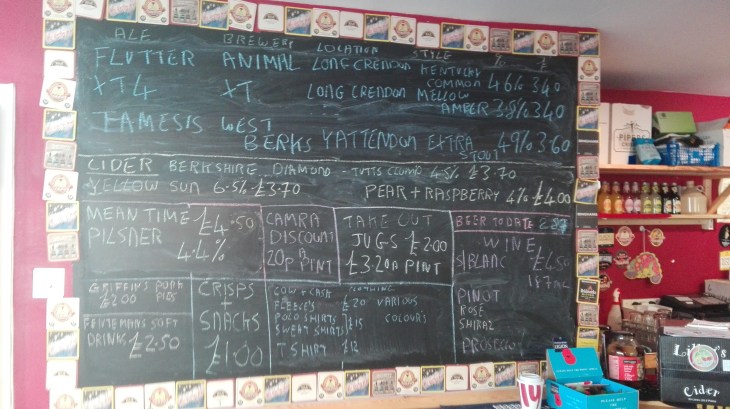 ALE BREWERY LOCATION STYLE % £
FLUTTER ANIMAL LONG CRENDON KENTUCKY COMMON 4.6% 3.40
XT4 XT LONG CRENDON MELLOW AMBER 3.8% 3.40
FAMESIS WEST BERKS YATTENDON EXTRA STOUT 4.9% 3.60
CIDER BERKSHIRE DIAMOND - TUTTS CLUMP 4.5% £3.70
YELLOW SUN 6.5% £3.70 PEAR + RASPBERRY 4% £4.00
MEAN TIME £4.50
PILSNER
4.4%
CAMRA
DISCOUNT
20p A PINT
TAKE OUT
JUGS £2.00
£3.20 A PINT
BEER TO DATE
WINE
S/BLANC £4.50
187ML
PINOT
ROSE
SHIRAZ
PROSECCO
GRIFFINS PORK PIES
£2.00
FENTEMANS SOFT
DRINKS £2.50
CRISPS
+
SNACKS
£1.00
COW & CASK CLOTHING
FLEECE'S £20 VARIOUS
POLO SHIRTS £15 COLOUR'S
SWEAT SHIRTS
T SHIRT £12
PIPERS
Cider